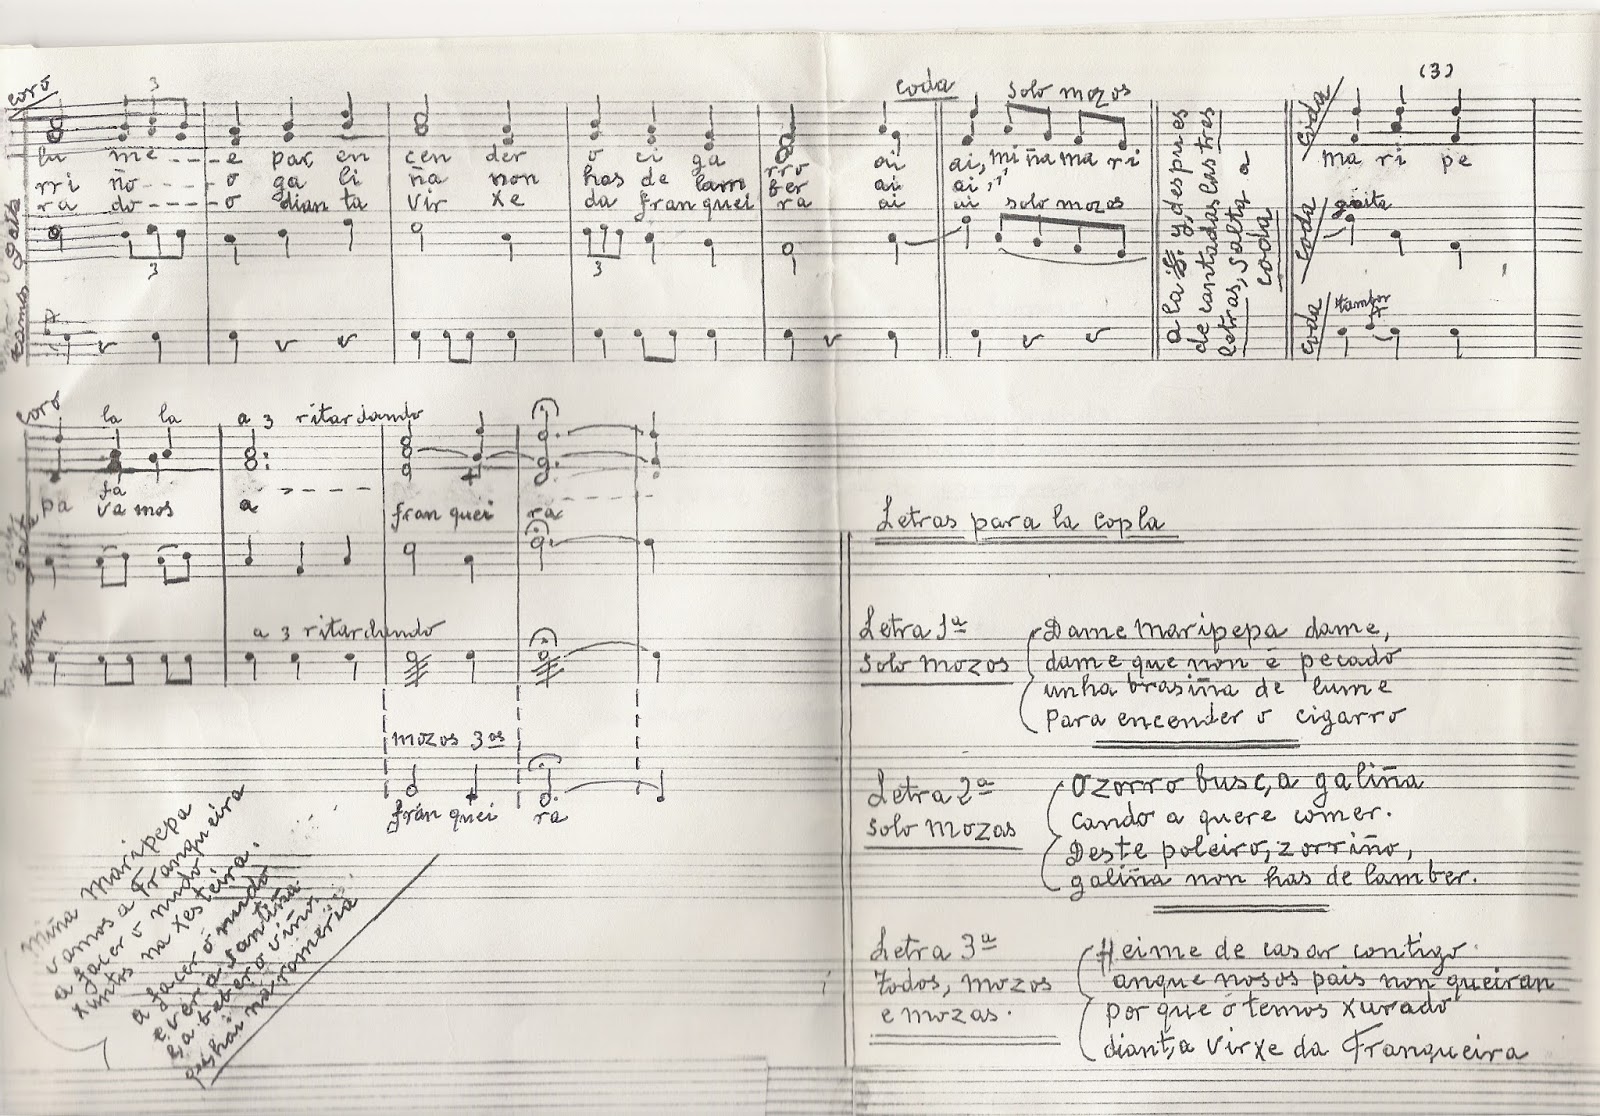 (3)
coro
3
coda
solo mozos
coda
lu me - - - - e par, en cen der o ci ga rro ai ai, mi ña ma ri
rri ño - - - - - o ga li ña non has de lam ber ai ai,
ra do - - - - - o dian ta vir xe da fran quei ra ai ai solo mozos
a la y, despues
de cantadas las tres
letras, salta a
coda
ma ri pe
gaita
3
3
coda
gaita
coda
tambor
coro
la la
a 3 ritardando
fa
pa va mos a fran quei ra
gaita
a 3 ritardando
tambor
mozos 3os
fran quei ra
miña Maripepa
vamos a Franqueira
a facer o mundo
xuntos na xesteira.
a facer o mundo
e ver a santiña
e a beber o viño
na romería
Letras para la copla
Letra 1ª
solo mozos
Dame maripepa dame,
dame que non é pecado
unha brasiña de lume
para encender o cigarro
Letra 2ª
solo mozas
O zorro busc,a galiña
cando a quere comer.
Deste poleiro, zorriño,
galiña non has de lamber.
Letra 3ª
Todos, mozos
e mozas.
Heime de casar contigo
anque nosos pais non queiran
por que ó temos xurado
diant,a Virxe da Franqueira